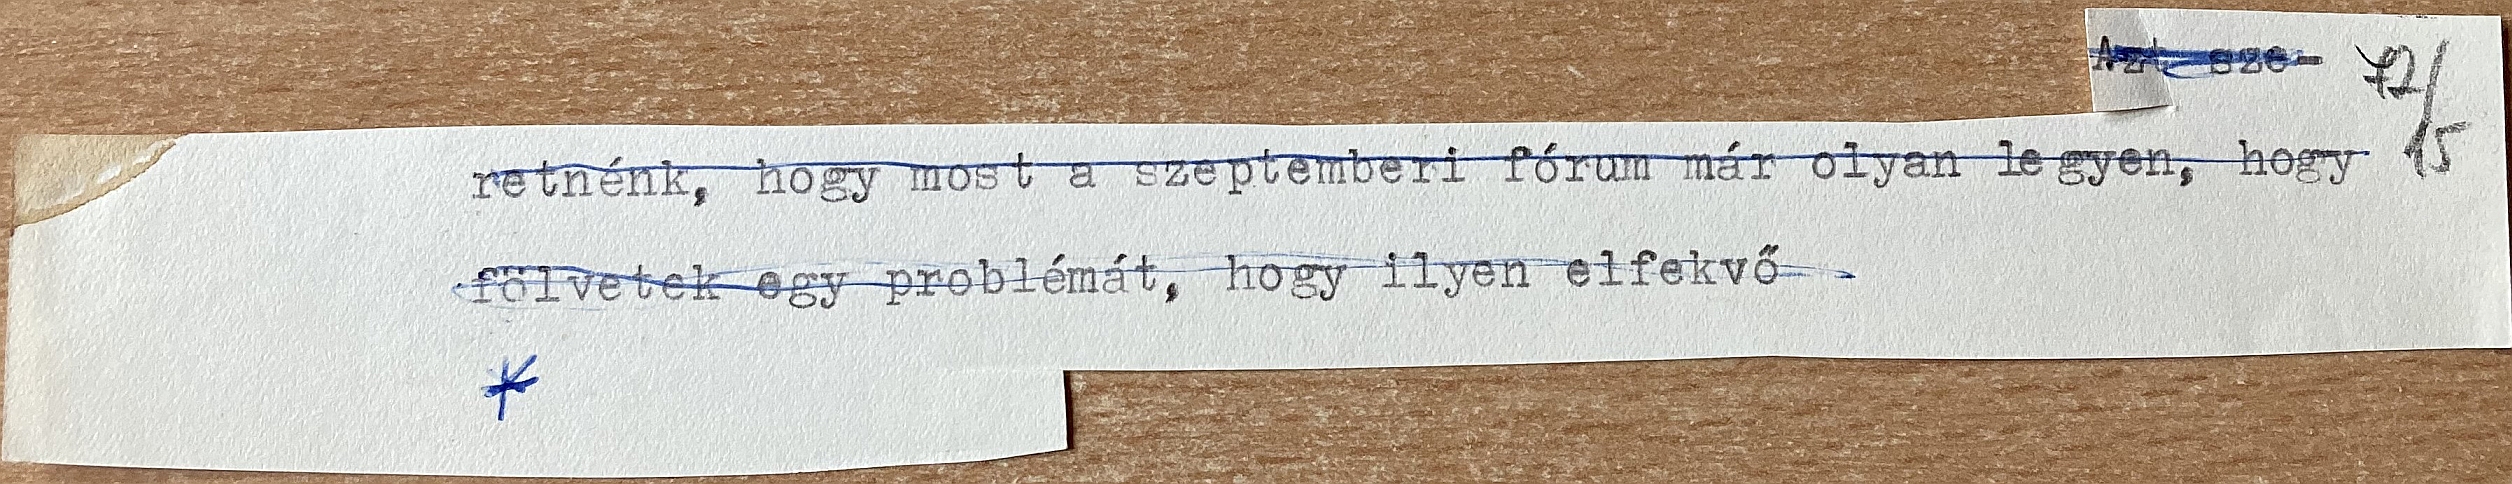 Azt sze- 72/15
retnénk, hogy most a szeptemberi fórum már olyan legyen, hogy
fölvetek egy problémát, hogy ilyen elfekvő
*